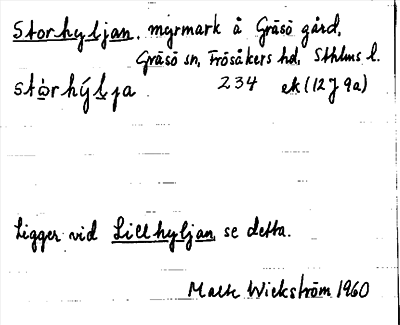 Storhyljan. myrmark å Gräsö gård,
Gräsö sn, Frösåkers hd, Sthlms l.
stòrhýlja 234 ek (12J 9a)
Ligger vid Lillhyljan, se detta.
Malte Wickström 1960